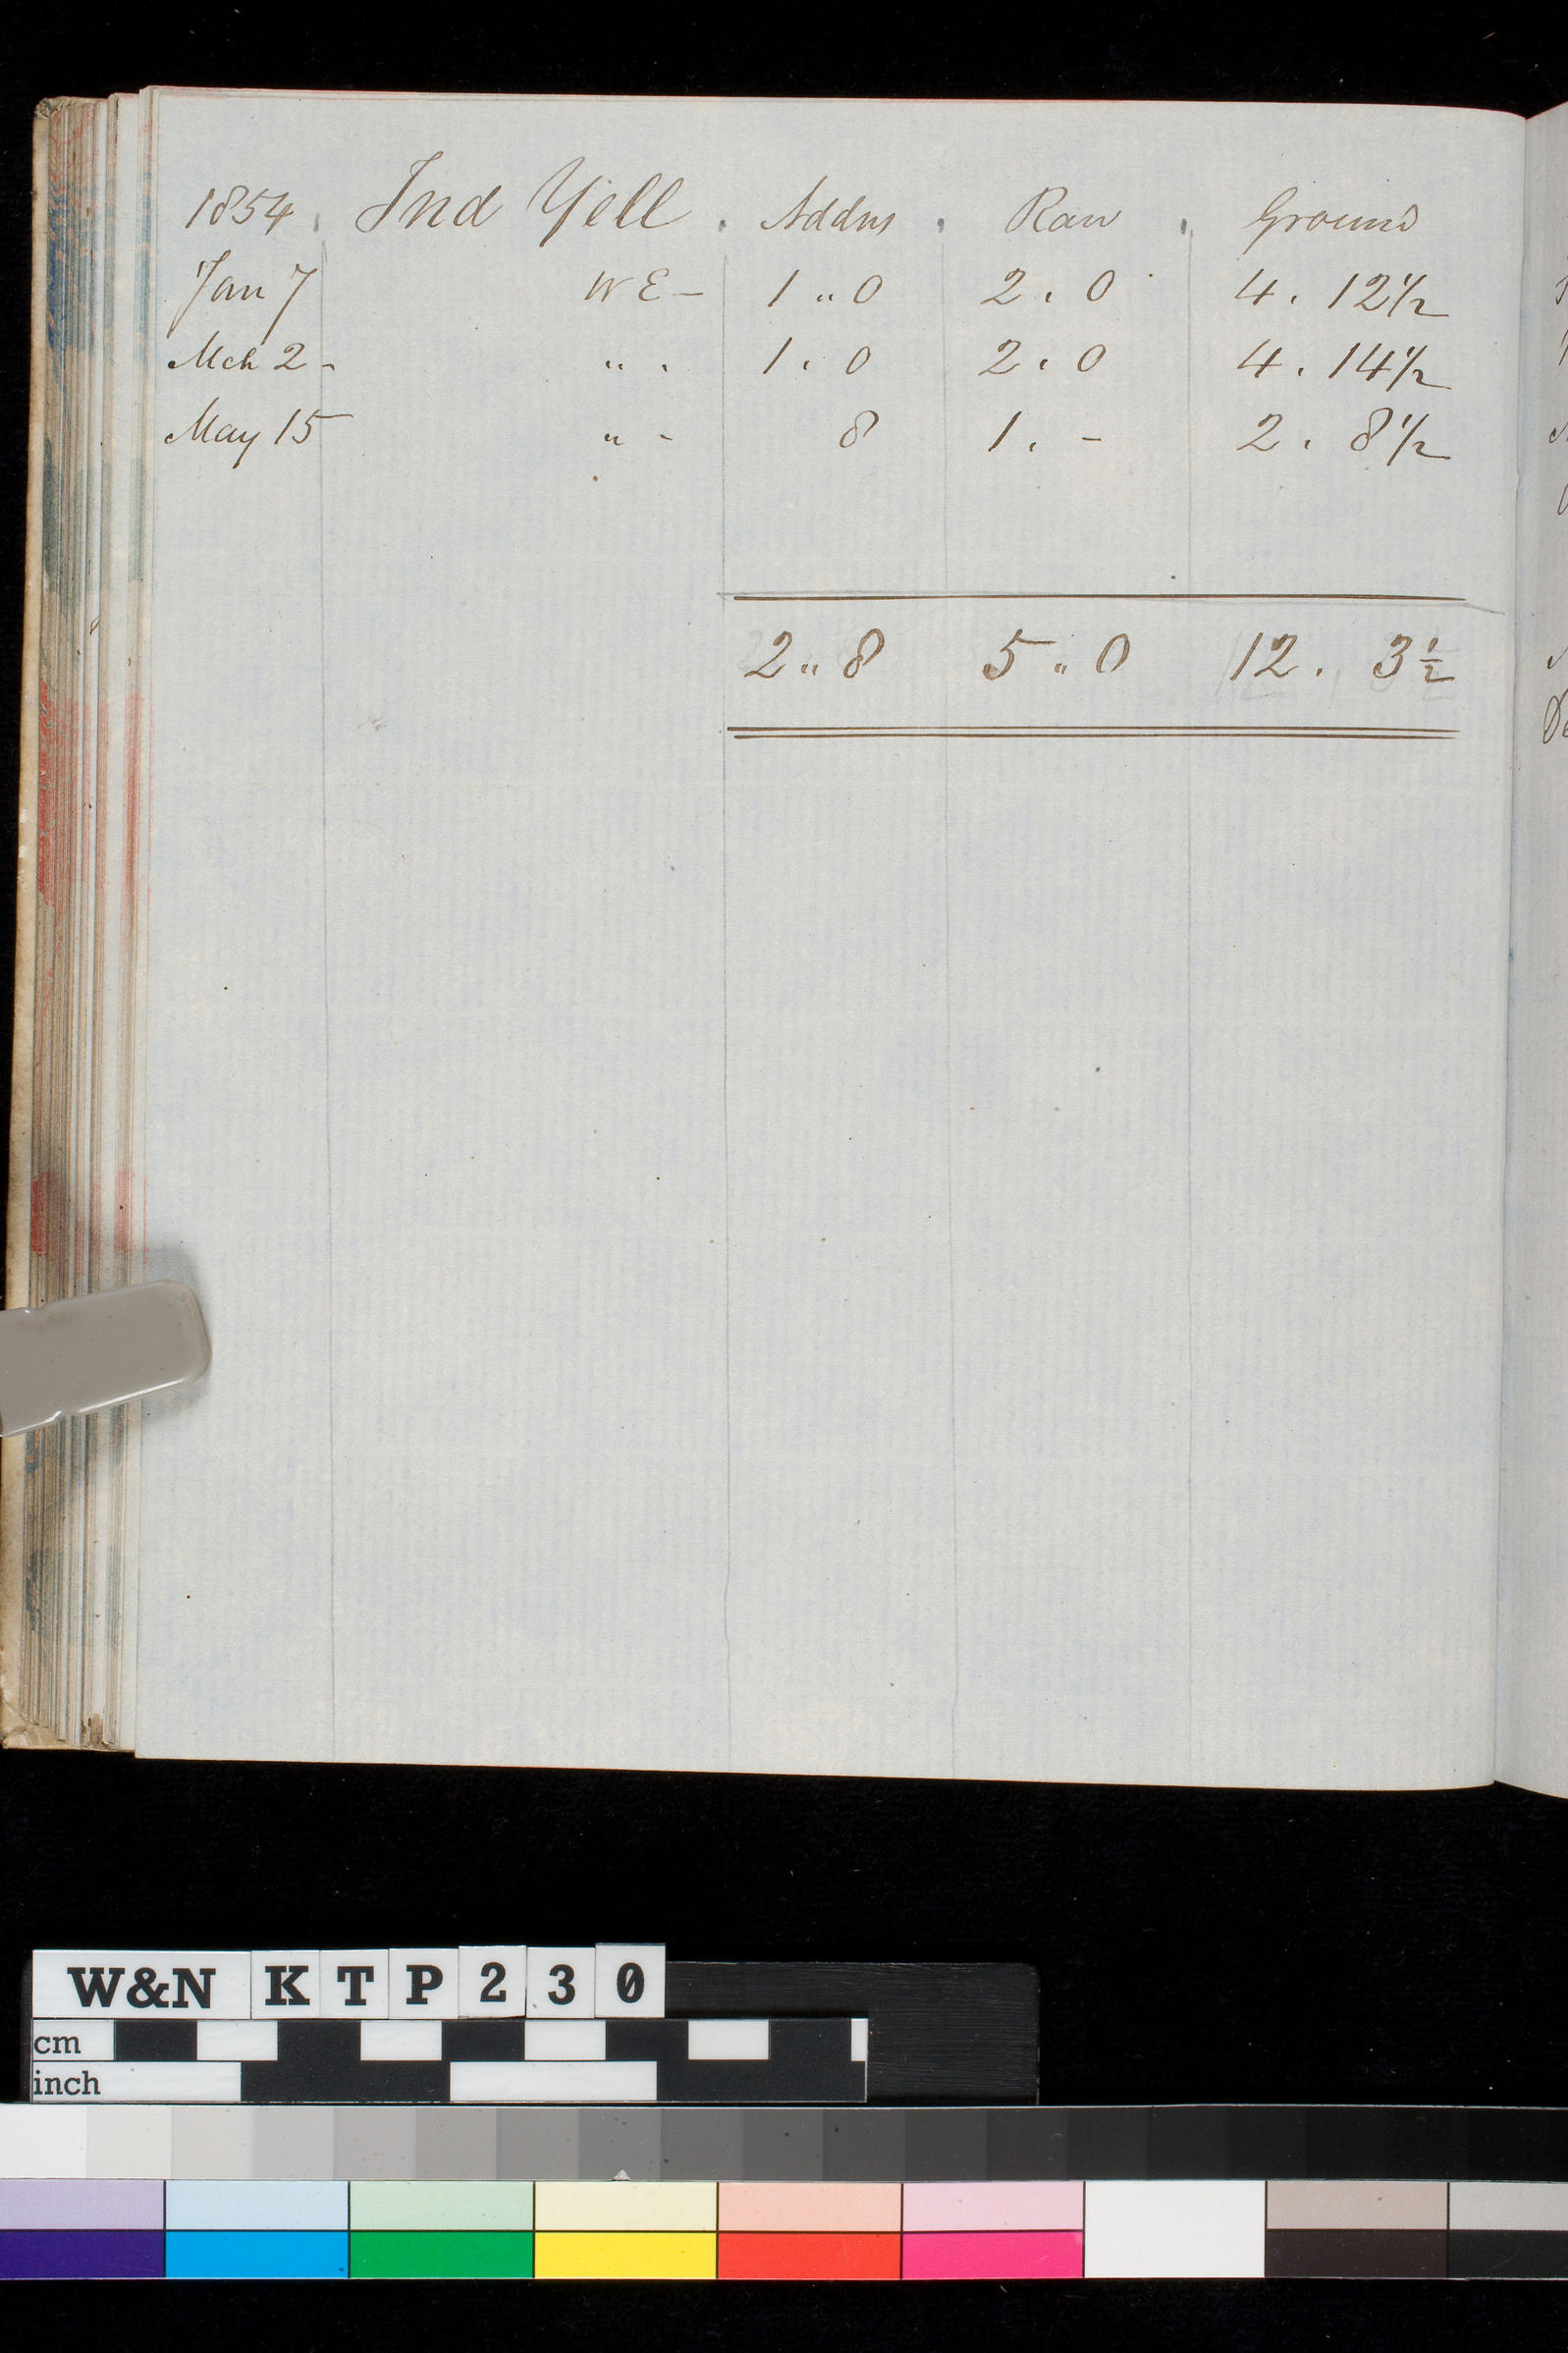 1854. Ind Yell. Addns. Raw. Ground
Jan 7 WE - 1 " 0 2 . 0 4 . 12 1/2
Mch 2 - " . 1 . 0 2 . 0 4 . 14 1/2
May 15 " - 8 1 . - 2 . 8 1/2
2 " 8 5 " 0 12 . 3 1/2
W&N KTP230
cm
inch